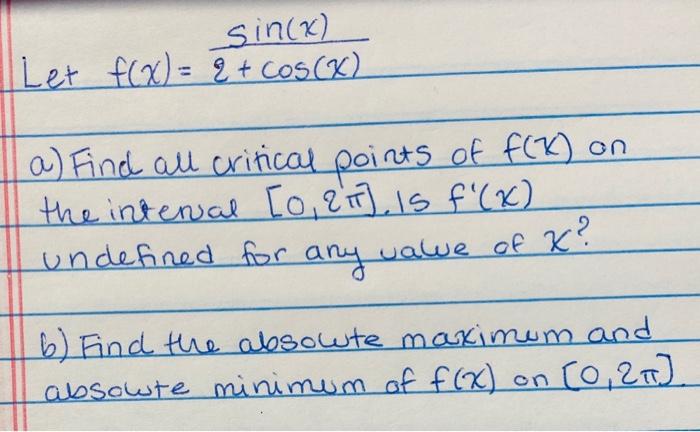 sin(x)
Let f(x) = 2 + cos(x)
a) Find all critical points of f(x) on
the interval [0, 2π]. Is f'(x)
undefined for any value of x?
b) Find the absolute maximum and
absolute minimum of f(x) on [0, 2π].